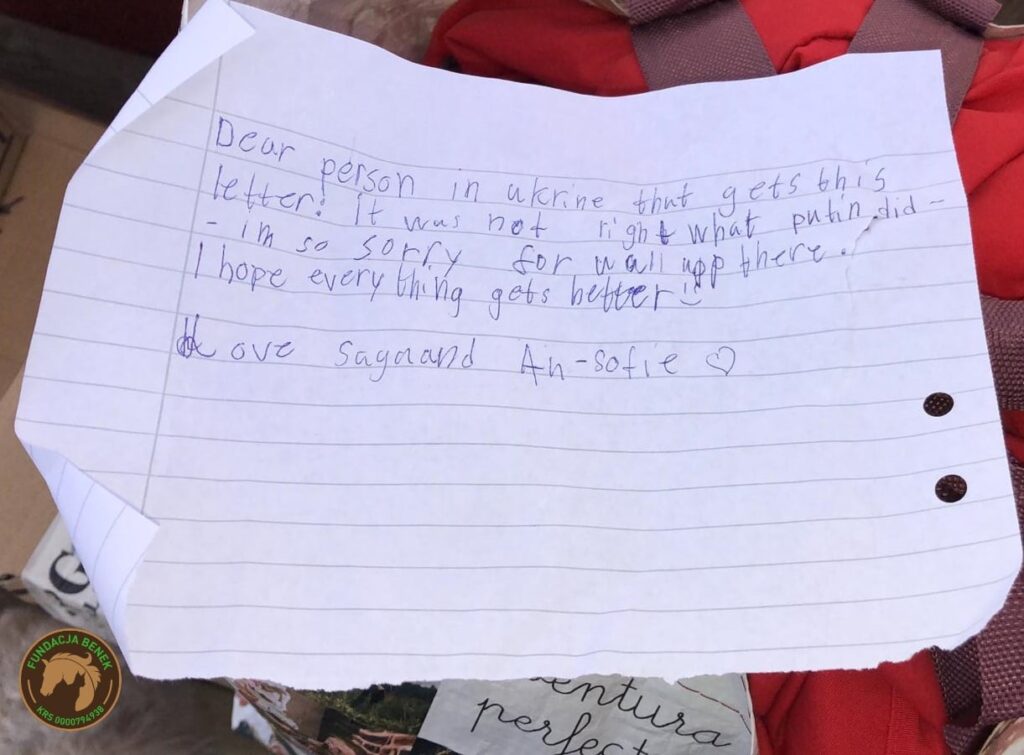 Dear person in ukrine that gets this
letter! it was not right what putin did -
- im so sorry for wall upp there.
I hope everything gets better!
Love Saga and An-sofie ♡
G
entura
perfect
FUNDACJA BENEK
KRS 0000794938